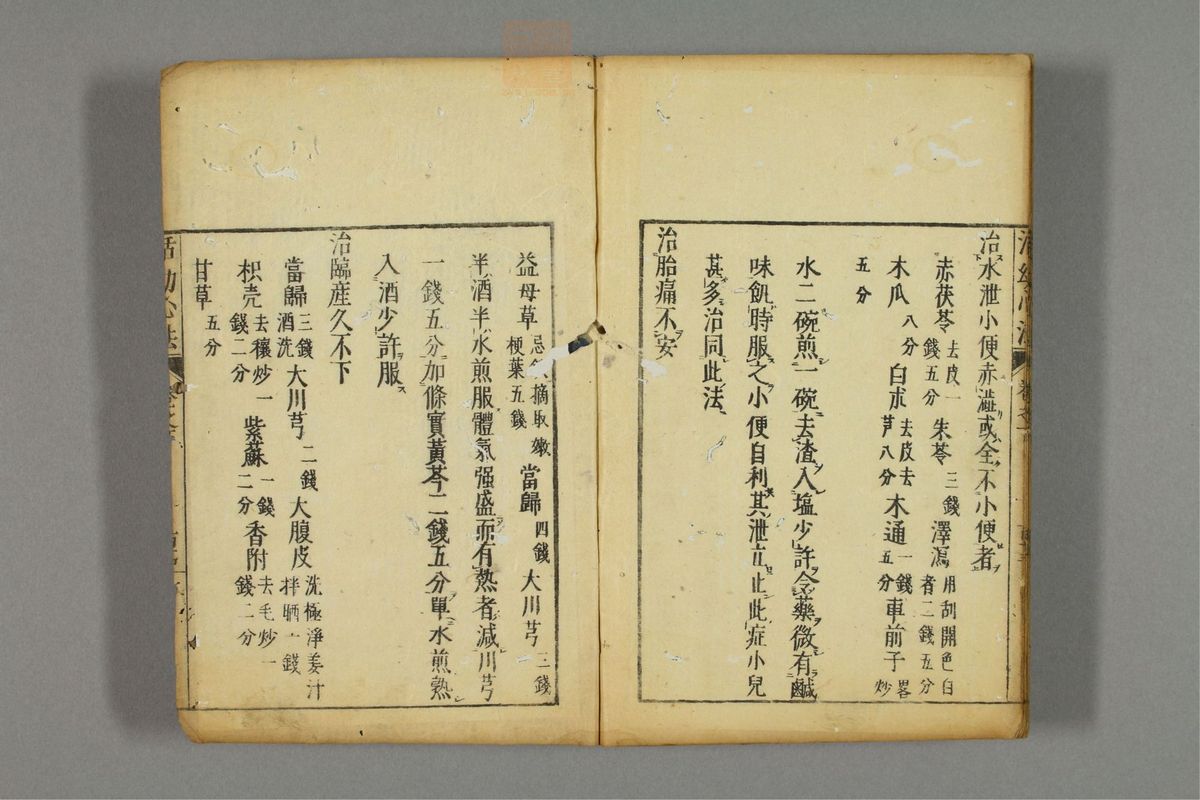 治水泄小便赤澁或全不小便者
赤茯苓去皮一錢五分 朱苓三錢 澤瀉用刮開色白者二錢五分
木瓜八分 白朮去皮去芦八分 木通一錢五分 車前子畧炒
五分
水二碗煎一碗去渣入塩少許令藥微有鹹
味飢時服之小便自利其泄立止此症小兒
甚多治同此法
治胎痛不安
益母草忌 摘取嫩梗葉五錢 當歸四錢 大川芎三錢
半酒半水煎服體氣强盛而有熱者減川芎
一錢五分加條實黃芩二錢五分單水煎熟
入酒少許服
治臨產久不下
當歸三錢酒洗 大川芎二錢 大腹皮洗極淨姜汁拌晒一錢
枳壳去穰炒一錢二分 紫蘇一錢二分 香附去毛炒一錢二分
甘草五分
活幼心法